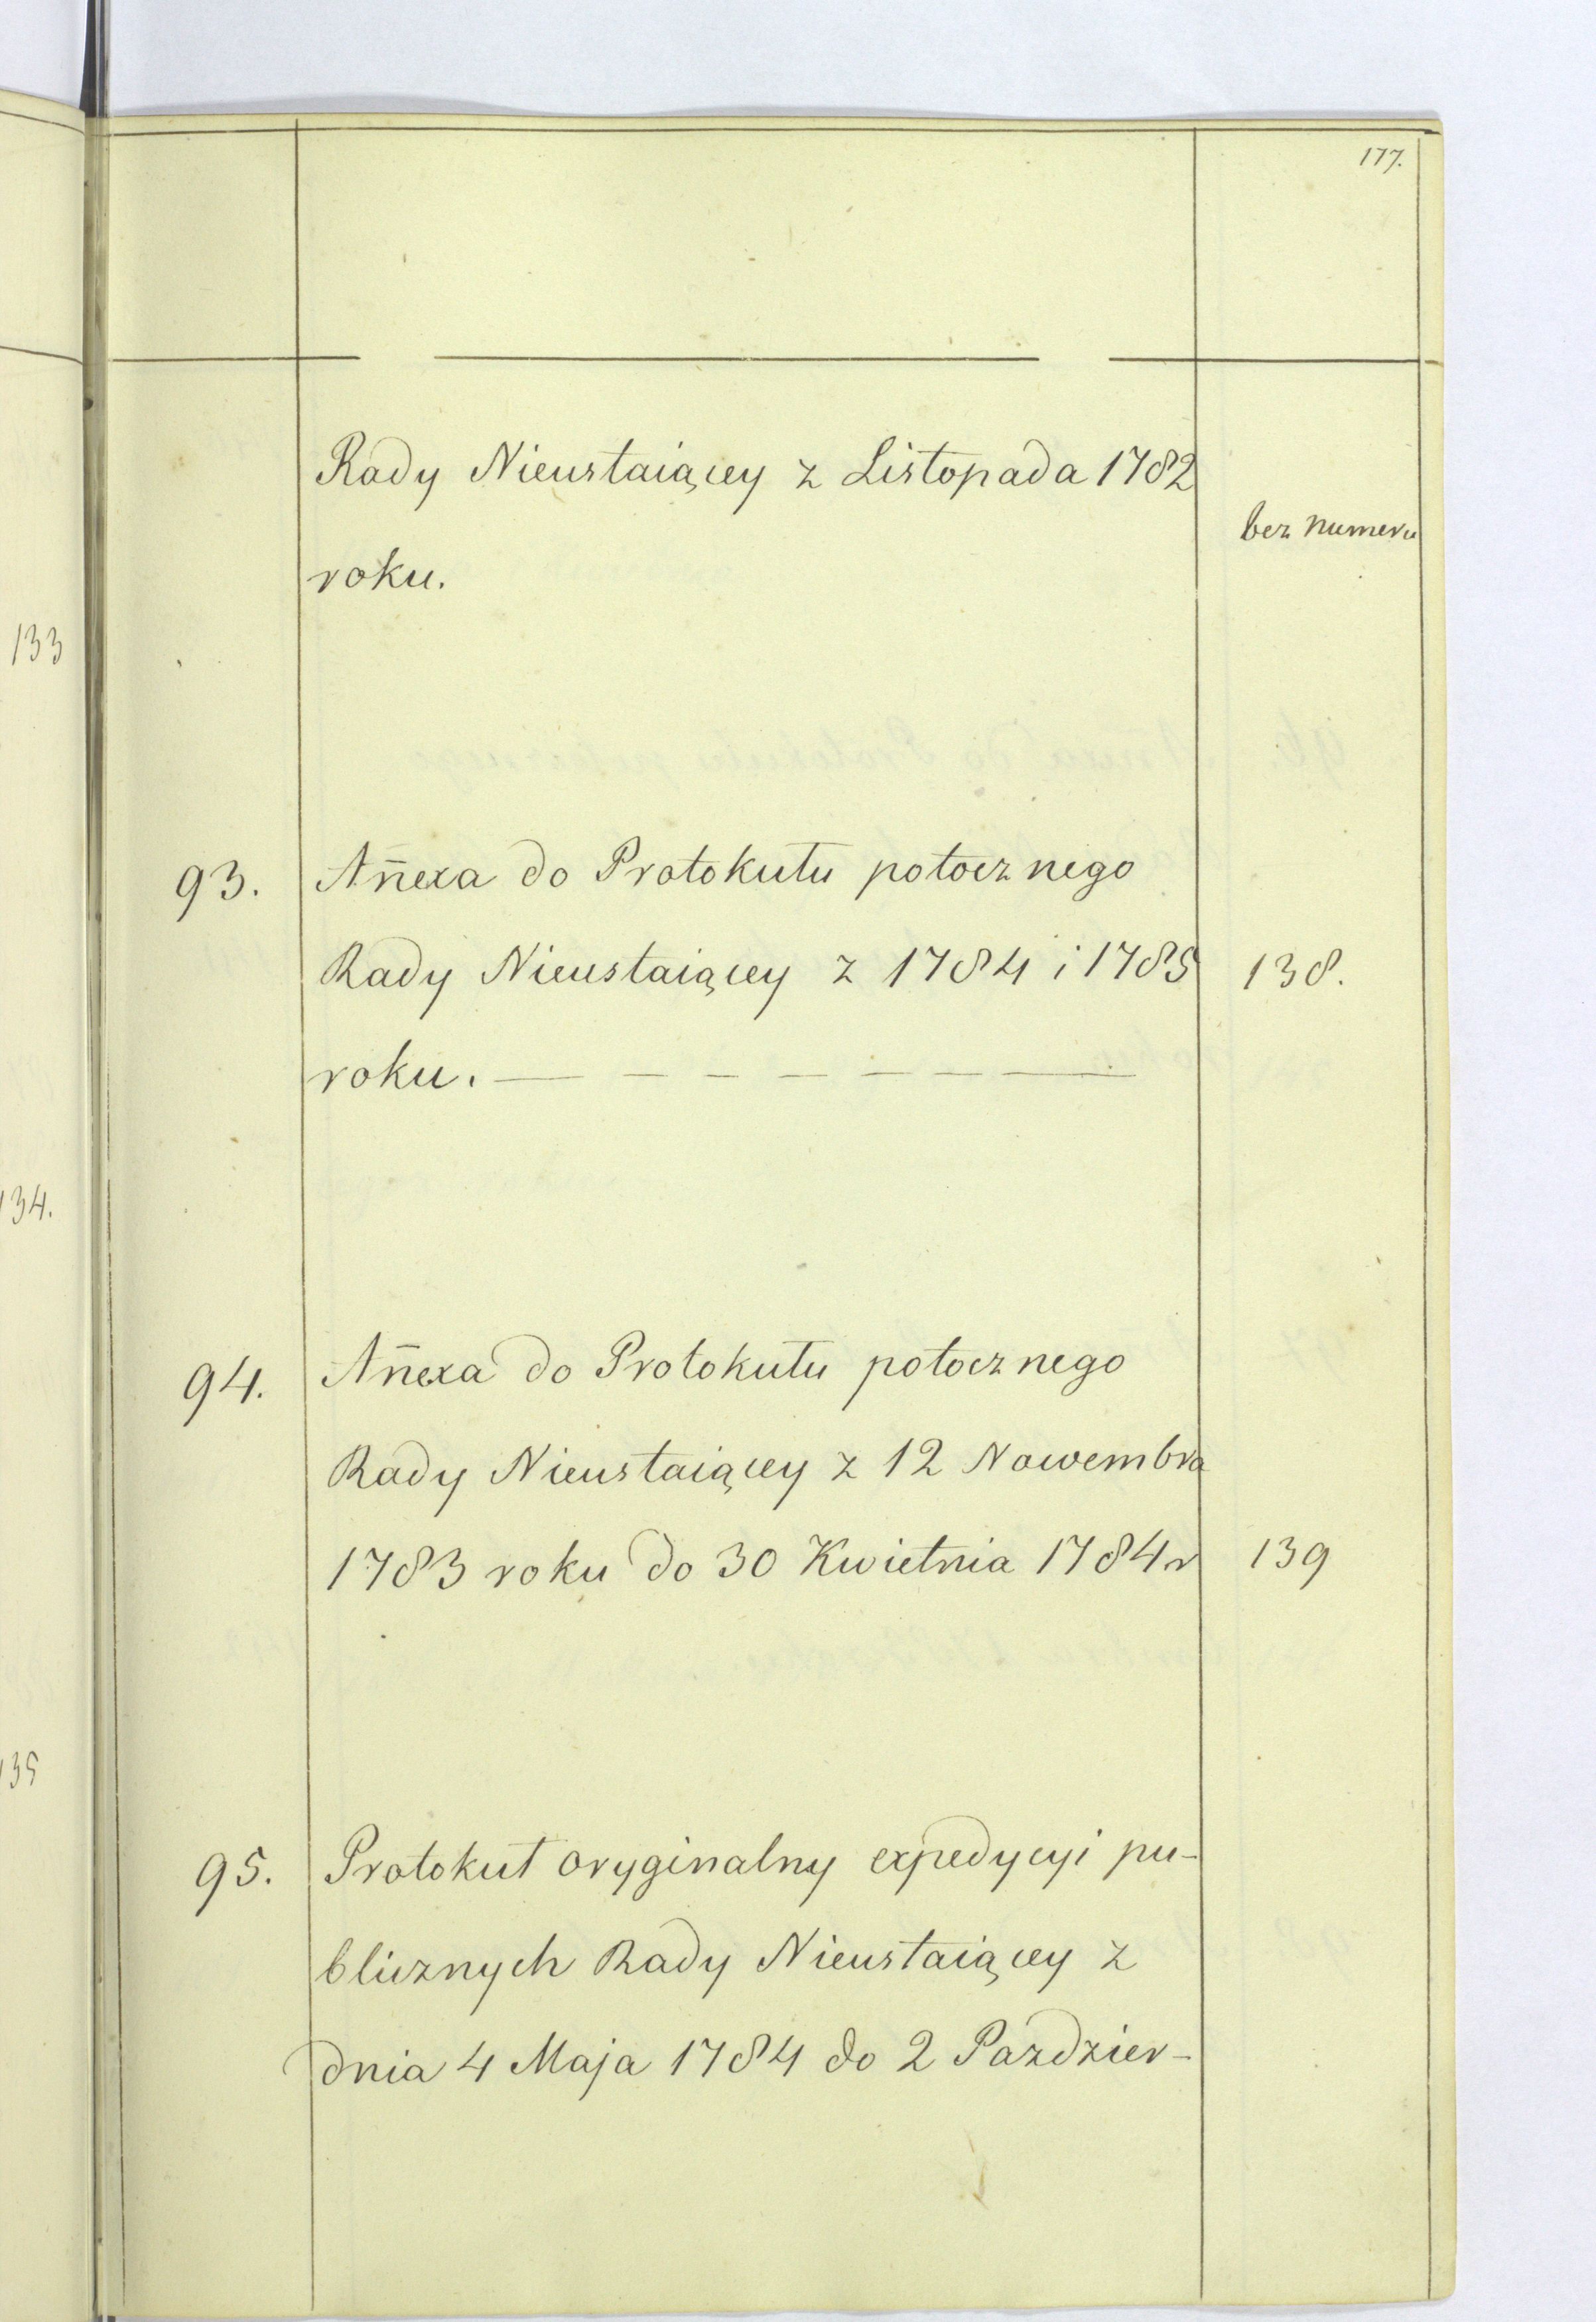 133
134.
135
177.
Rady Nieustaiącey z Listopada 1782
bez numeru
roku.
93. Añexa do Protokułu potocznego
Rady Nieustaiącey z 1784 i 1785 138.
roku. — — — — — — —
94. Añexa do Protokułu potocznego
Rady Nieustaiącey z 12 Nowembra
1783 roku do 30 Kwietnia 1784 r 139
95. Protokuł oryginalny expedycyi pu-
blicznych Rady Nieustaiącey z
dnia 4 Maja 1784 do 2 Pazdzier-